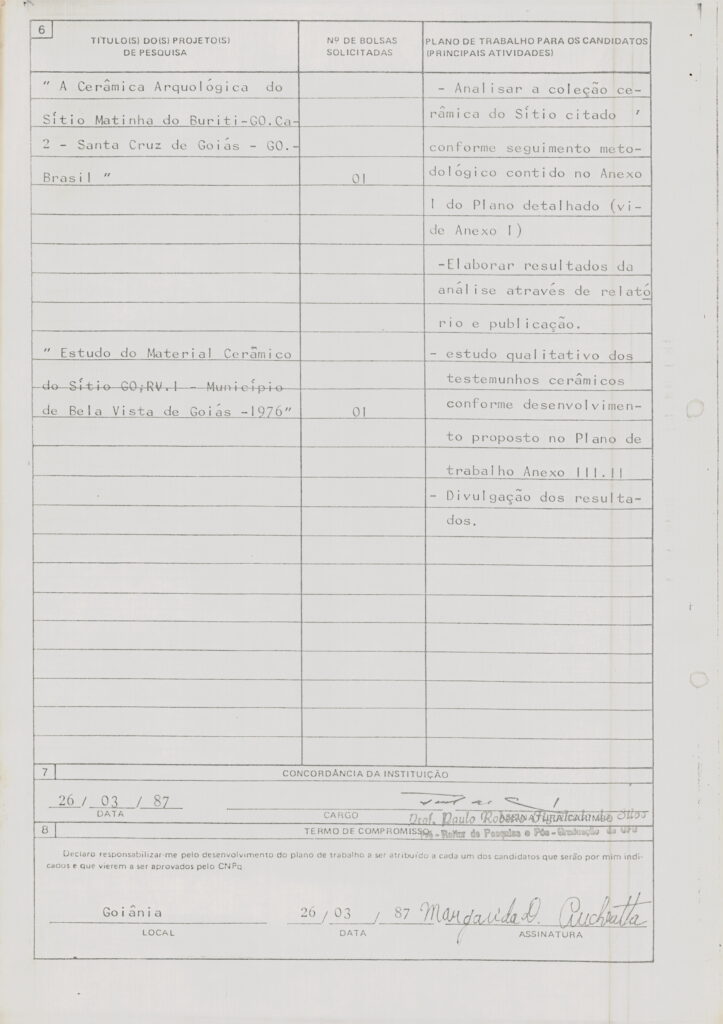 6
TÍTULO(S) DO(S) PROJETO(S)
DE PESQUISA
Nº DE BOLSAS
SOLICITADAS
PLANO DE TRABALHO PARA OS CANDIDATOS
(PRINCIPAIS ATIVIDADES)
" A Cerâmica Arquológica do
Sítio Matinha do Buriti-GO.Ca-
2 - Santa Cruz de Goiás - GO.-
Brasil "
01
- Analisar a coleção ce-
râmica do Sítio citado ,
conforme seguimento meto-
dológico contido no Anexo
I do Plano detalhado (vi-
de Anexo I)
-Elaborar resultados da
análise através de relató
rio e publicação.
" Estudo do Material Cerâmico
do Sítio GO;RV.I - Município
de Bela Vista de Goiás -1976"
01
- estudo qualitativo dos
testemunhos cerâmicos
conforme desenvolvimen-
to proposto no Plano de
trabalho Anexo III.II
- Divulgação dos resulta-
dos.
7
CONCORDÂNCIA DA INSTITUIÇÃO
26 / 03 / 87
DATA
CARGO
Prof. Paulo
Pró-Reitor de Pesquisa e Pós-Graduação da UFG
8
TERMO DE COMPROMISSO
Declaro responsabilizar-me pelo desenvolvimento do plano de trabalho a ser atribuído a cada um dos candidatos que serão por mim indi-
cados e que vierem a ser aprovados pelo CNPq
Goiânia
26 / 03 / 87
Margarida D.
LOCAL
DATA
ASSINATURA